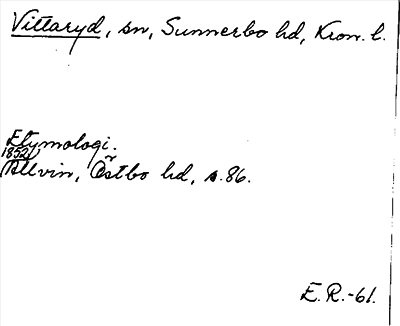 Vittaryd, sn, Sunnerbo hd, Kron. l.
Etymologi.
1852
Allvin, Östbo hd, s. 86.
E. R. -61.